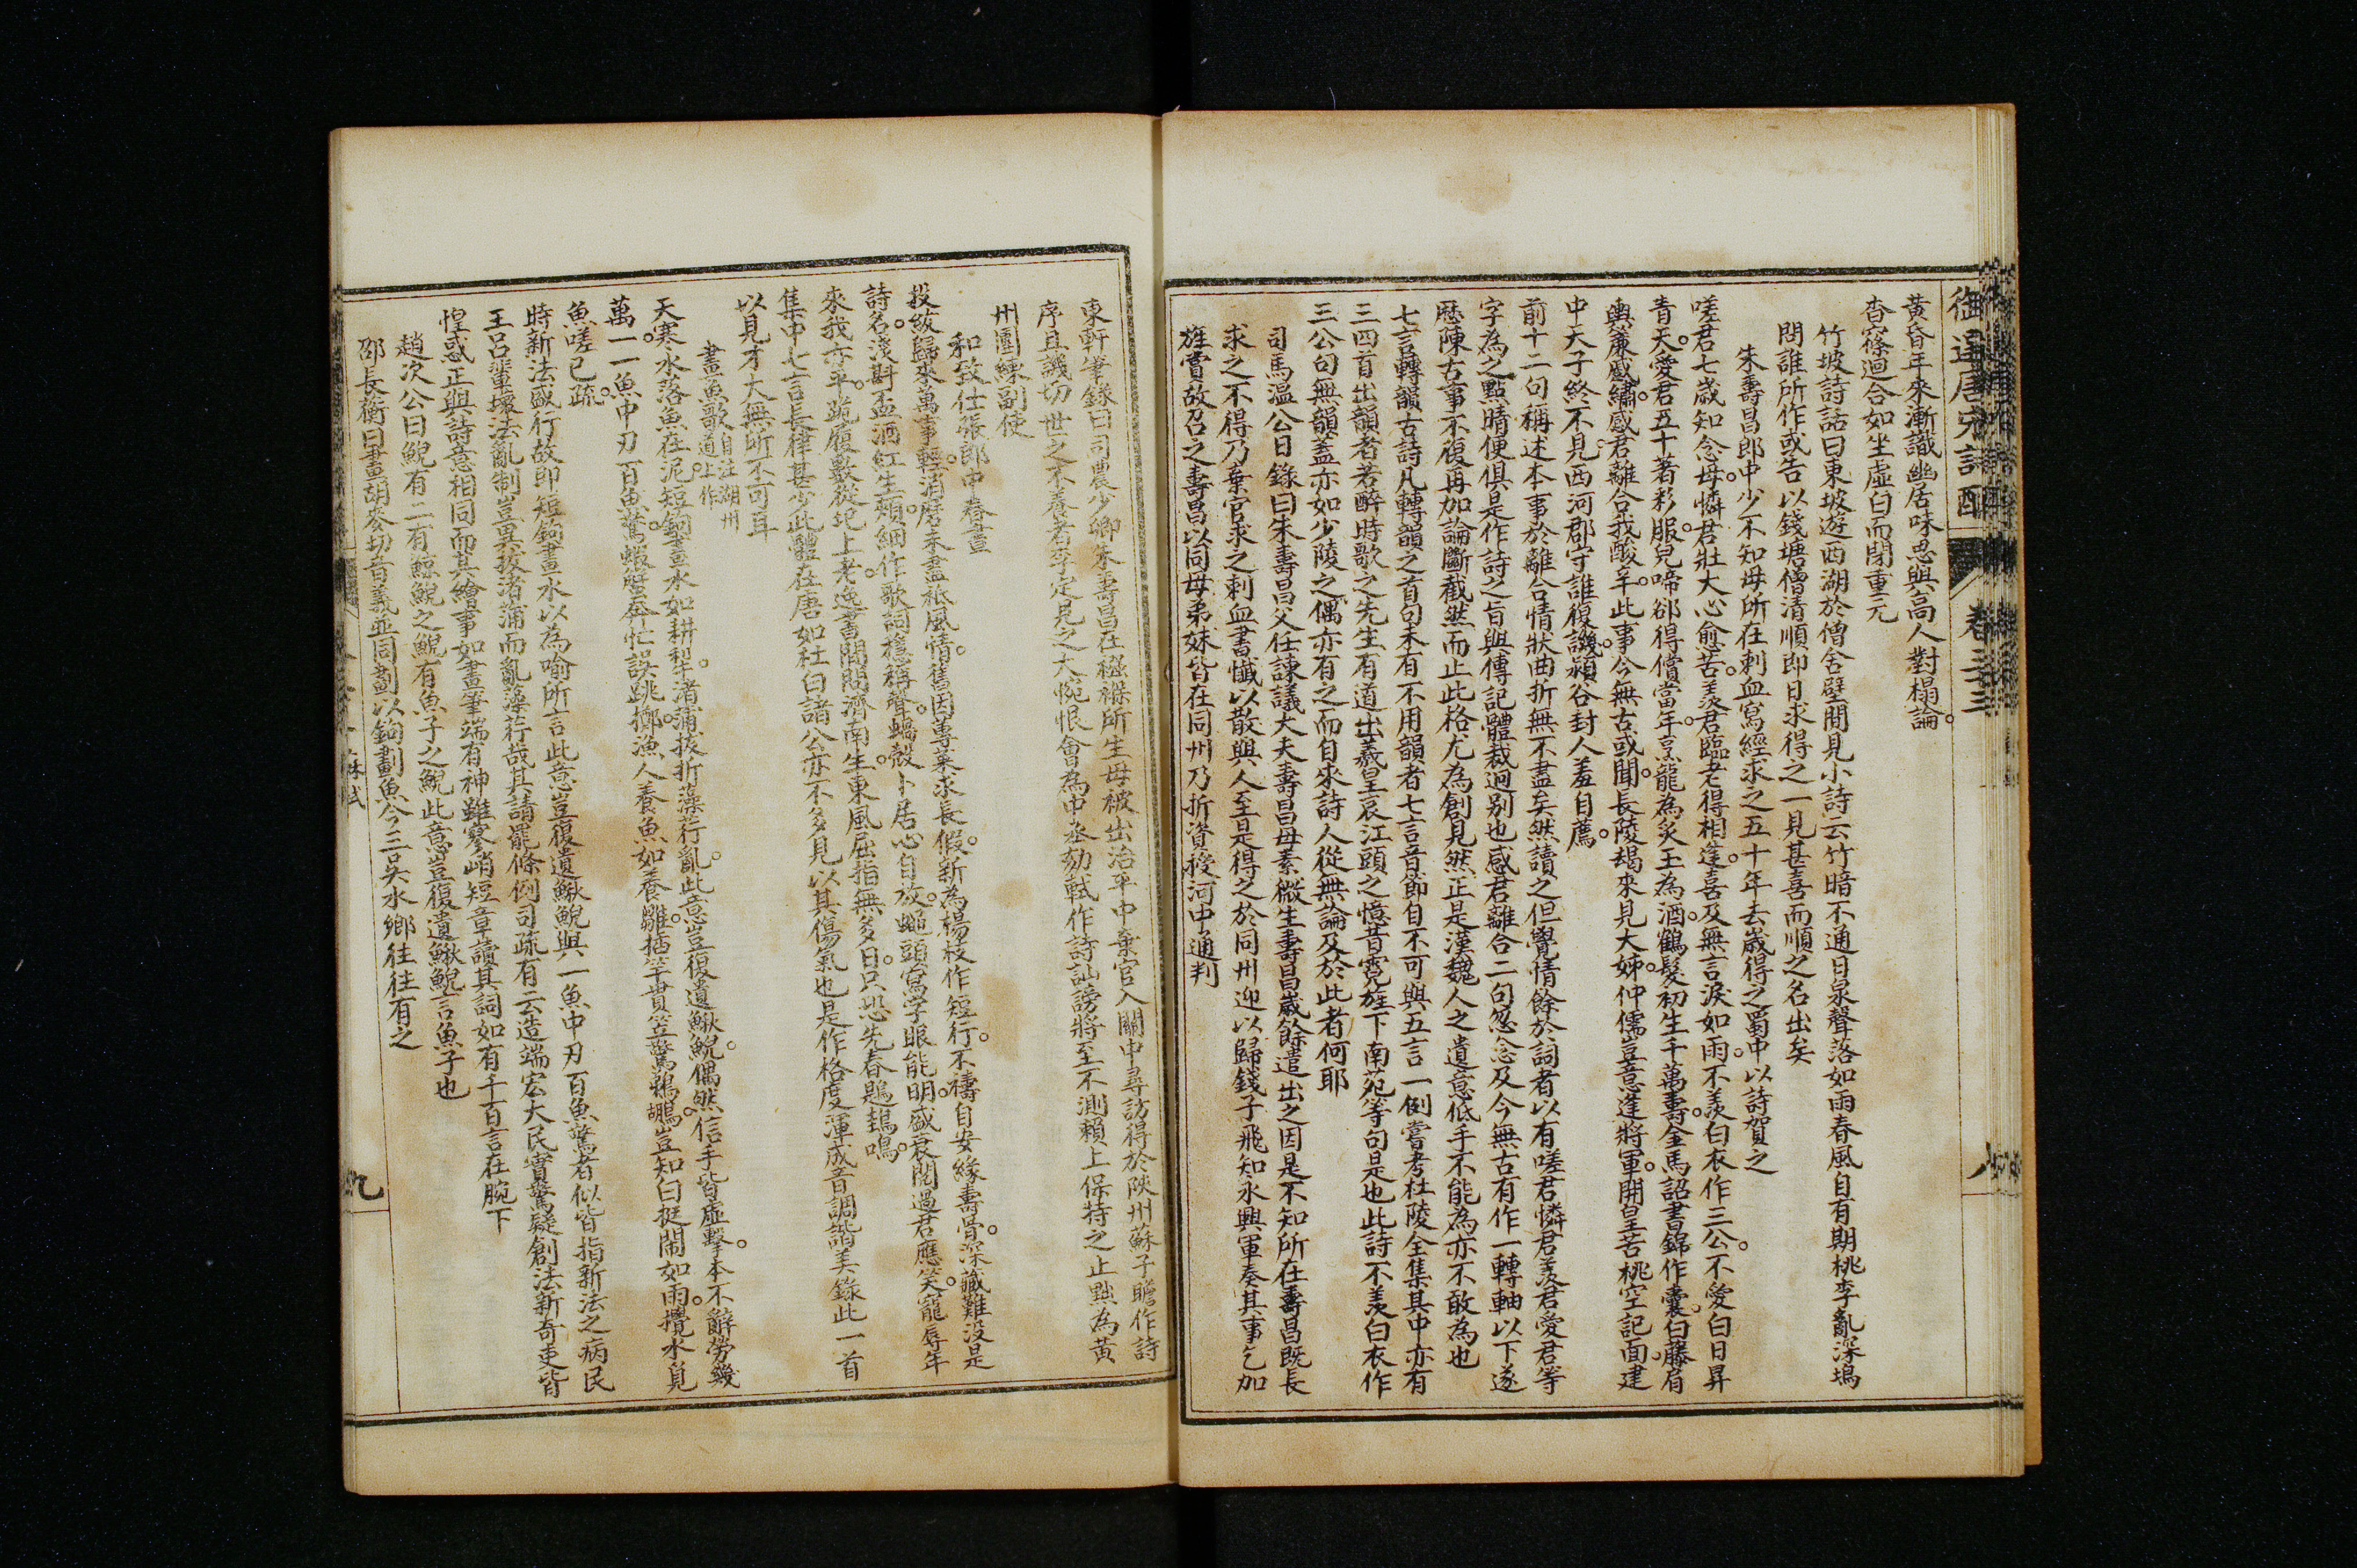 黃昏年來漸識幽居味思與高人對榻論
杳窱迴合如坐虛白而閉重元
竹坡詩話曰東坡遊西湖於僧舍壁間見小詩云竹暗不通日泉聲落如雨春風自有期桃李亂深塢
問誰所作或告以錢塘僧清順即日求得之一見甚喜而順之名出矣
朱壽昌郎中少不知母所在刺血寫經求之五十年去歲得之蜀中以詩賀之
嗟君七歲知念母憐君壯大心愈苦羨君臨老得相逢喜及無言淚如雨不羨白衣作三公不愛白日昇
青天愛君五十著彩服兒啼卻得償當年烹龍為炙玉為酒鶴髮初生千萬壽金馬詔書錦作囊白藤肩
輿簾蹙繡感君離合我酸辛此事今無古或聞長陵朅來見大姊仲儒豈意逢將軍開皇苦桃空記面建
中天子終不見西河郡守誰復譏潁谷封人羞自薦
前十二句稱述本事於離合情狀曲折無不盡矣然讀之但覺情餘於詞者以有嗟君憐君羨君愛君等
字為之點睛便俱是作詩之旨與傳記體裁迥別也感君離合二句忽念及今無古有作一轉軸以下遂
歷陳古事不復再加論斷截然而止此格尤為創見然正是漢魏人之遺意低手不能為亦不敢為也
七言轉韻古詩凡轉韻之首句未有不用韻者七言音節自不可與五言一例嘗考杜陵全集其中亦有
三四首出韻者若醉時歌之先生有道出羲皇哀江頭之憶昔霓旌下南苑等句是也此詩不羨白衣作
三公句無韻蓋亦如少陵之偶亦有之而自來詩人從無論及於此者何耶
司馬溫公日錄曰朱壽昌父任諫議大夫壽昌母素微生壽昌歲餘遣出之因是不知所在壽昌既長
求之不得乃棄官求之刺血書懺以散與人至是得之於同州迎以歸錢子飛知永興軍奏其事乞加
旌賞故召之壽昌以同母弟妹皆在同州乃折資授河中通判
御選唐宋詩醇 卷三十三
東軒筆錄曰司農少卿朱壽昌在襁褓所生母被出治平中棄官入關中尋訪得於陝州蘇子瞻作詩
序且譏切世之不養者李定見之大惋恨會為中丞劾軾作詩訕謗將至不測賴上保持之止黜為黃
州團練副使
和致仕張郎中春晝
投紱歸來萬事輕消磨未盡祗風情舊因蓴菜求長假新為楊枝作短行不禱自安緣壽骨深藏難沒是
詩名淺斟盃酒紅生頰細作歌詞穩稱聲蝸殼卜居心自放蠅頭寫字眼能明盛衰閱過君應笑寵辱年
來我亦平跪履數從圯上老逸書閒問濟南生東風屈指無多日只恐先春鶗鴂鳴
集中七言長律甚少此體在唐如杜白諸公亦不多見以其傷氣也是作格度渾成音調諧美錄此一首
以見才大無所不可耳
畫魚歌 自注湖州道上作
天寒水落魚在泥短鉤畫水如耕犁渚蒲拔折藻荇亂此意豈復遺鰍鯢偶然信手皆虛擊本不辭勞幾
萬一一魚中刃百魚驚蝦蟹奔忙誤跳擲漁人養魚如養雛插竿貫笠驚鵜鶘豈知白挺鬧如雨攪水覓
魚嗟已疏
時新法盛行故即短鉤畫水以為喻所言此意豈復遺鰍鯢與一魚中刃百魚驚者似皆指新法之病民
王呂輩壞法亂制豈異拔渚蒲而亂藻荇哉其請罷條例司疏有云造端宏大民實驚疑創法新奇吏皆
惶惑正與詩意相同而其繪事如畫筆端有神雖寥峭短章讀其詞如有千百言在腕下
趙次公曰鯢有二有鯨鯢之鯢有魚子之鯢此意豈復遺鰍鯢言魚子也
邵長蘅曰畫胡麥切音義並同劃以鉤劃魚今三吳水鄉往往有之
蘇軾
九